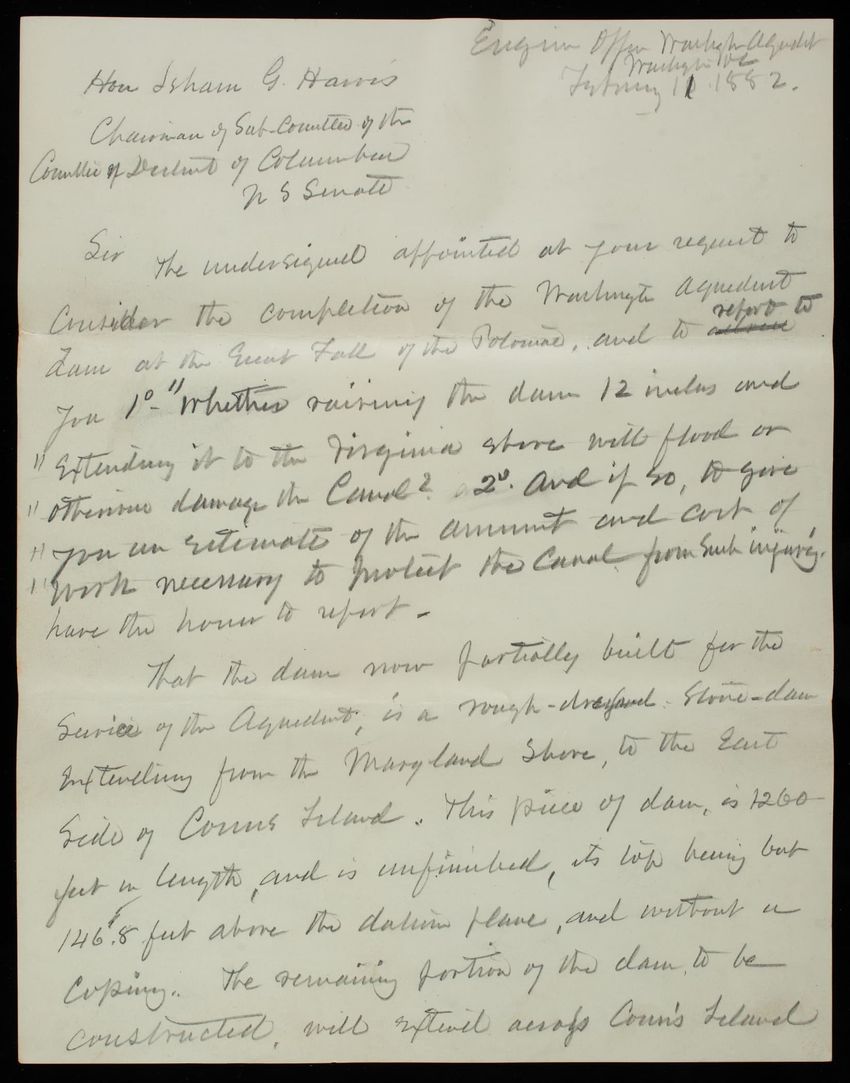 Engineer Office Washington Aqueduct
Washington DC
February 11 1882.
Hon Isham G. Harris
Chairman of Sub-Committee of the
Committee of District of Columbia
U S Senate
Sir The undersigned appointed at your request to
consider the completion of the Washington Aqueduct
Dam at the Great Fall of the Potomac, and to report to
you 1°-" Whether raising the dam 12 inches and
" extending it to the Virginia shore will flood or
" otherwise damage the Canal? 2°. And if so, to give
" you an estimate of the amount and cost of
" work necessary to protect the Canal from such injury.
have the honor to report -
That the dam now partially built for the
Service of the Aqueduct, is a rough-dressed - Stone-dam
Extending from the Maryland Shore, to the East
Side of Conns Island. This piece of dam, is 1260
feet in length, and is unfinished, its top being but
146.8 feet above the datum plane, and without a
Coping. The remaining portion of the dam, to be
constructed, will extend across Conn's Island